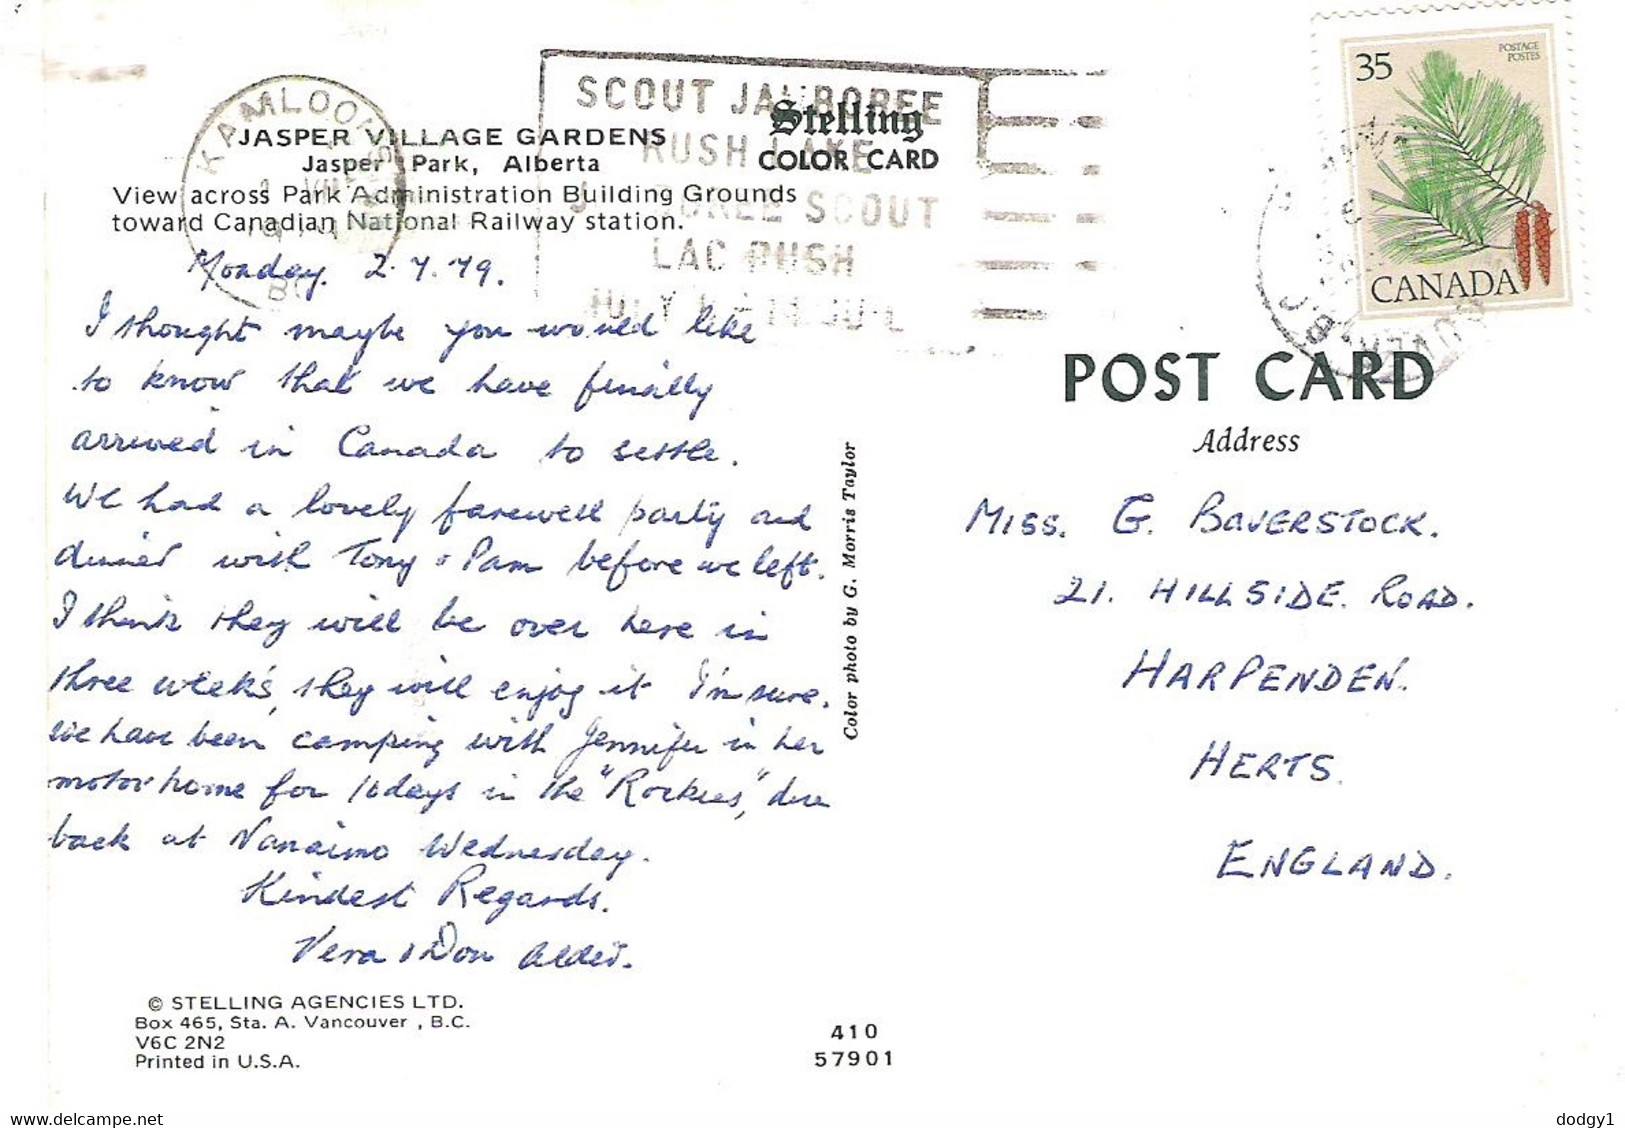 JASPER VILLAGE GARDENS
Jasper Park, Alberta
View across Park Administration Building Grounds
toward Canadian National Railway station.
Stelling
COLOR CARD
KAMLOOPS
SCOUT JAMBOREE
RUSH LAKE
SCOUT
LAC RUSH
35
POSTAGE
POSTES
CANADA
Monday. 2.7.79.
I thought maybe you would like
to know that we have finally
arrived in Canada to settle.
We had a lovely farewell party and
dinner with Tony & Pam before we left.
I think they will be over here in
three week's, they will enjoy it I'm sure.
We have been camping with Jennifer in her
motor home for 10 days in the "Rockies", due
back at Nanaimo Wednesday.
Kindest Regards.
Vera & Don
POST CARD
Address
MISS. G. BAVERSTOCK.
21. HILLSIDE. ROAD.
HARPENDEN.
HERTS.
ENGLAND.
Color photo by G. Morris Taylor
© STELLING AGENCIES LTD.
Box 465, Sta. A. Vancouver, B.C.
V6C 2N2
Printed in U.S.A.
410
57901
dodgy1